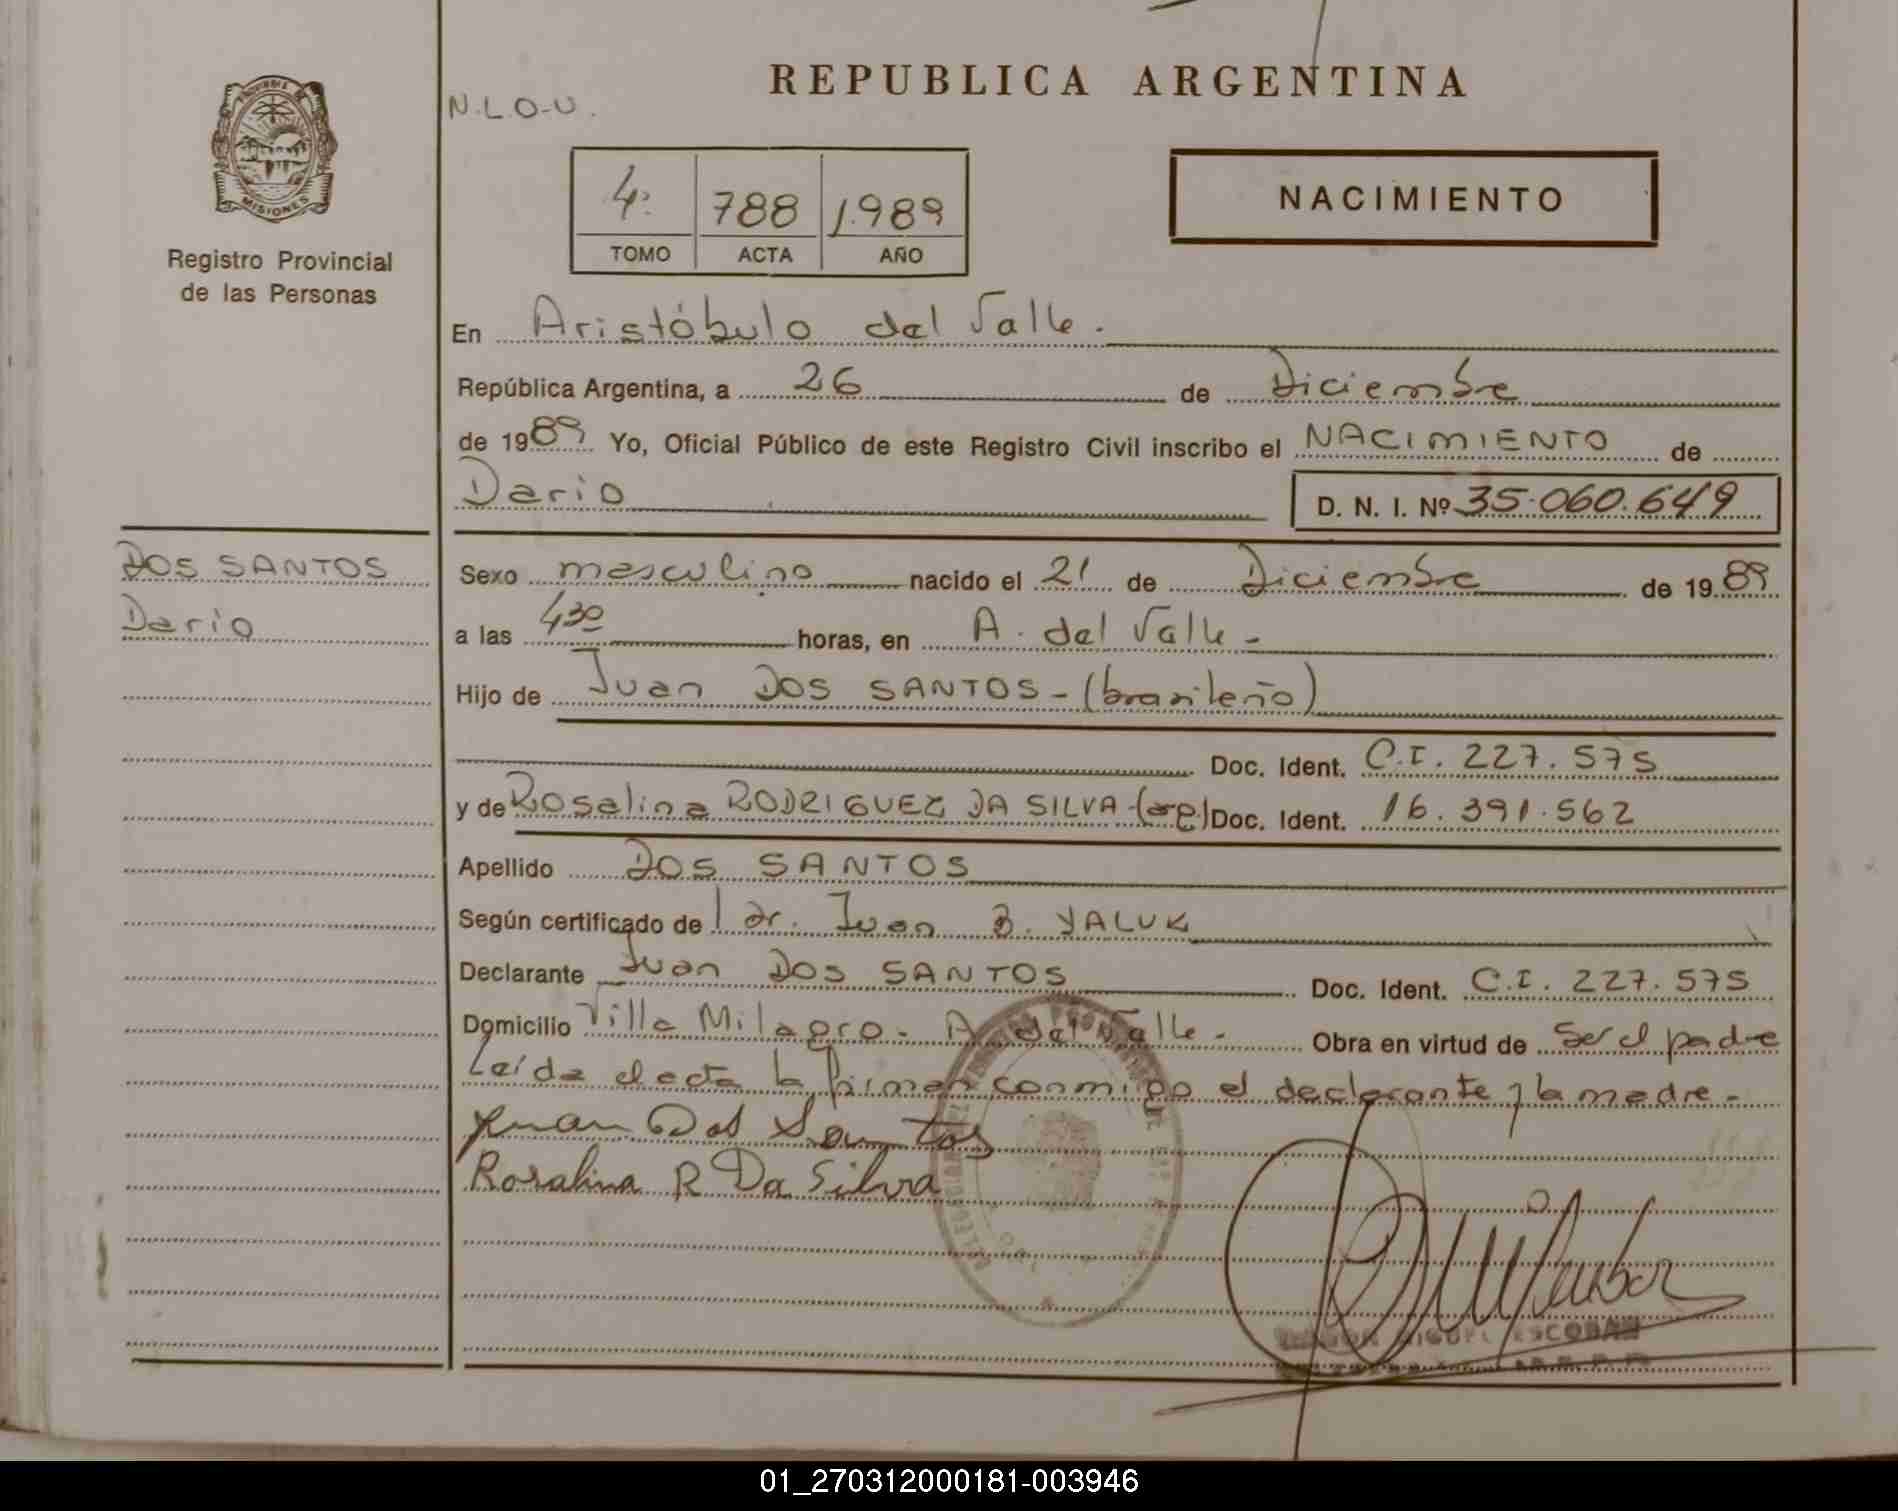 REPUBLICA ARGENTINA
N.L.O-U.
MISIONES
Registro Provincial
de las Personas
4º 788 1.989
TOMO ACTA AÑO
NACIMIENTO
En Aristóbulo del Valle.
República Argentina, a 26 de Diciembre
de 1989 Yo, Oficial Público de este Registro Civil inscribo el NACIMIENTO de
Dario D. N. I. Nº 35.060.649
DOS SANTOS
Dario
Sexo masculino nacido el 21 de Diciembre de 1989
a las 4 30 horas, en A. del Valle -
Hijo de Juan DOS SANTOS - (brasileño)
Doc. Ident. C.I. 227.575
y de Rosalina RODRIGUEZ DA SILVA - (arg) Doc. Ident. 16.391.562
Apellido DOS SANTOS
Según certificado de dr. Juan B. YALUK
Declarante Juan DOS SANTOS Doc. Ident. C.I. 227.575
Domicilio Villa Milagro - A. del Valle - Obra en virtud de Ser el padre
Leída el acta la firman conmigo el declarante y la madre -
Juan Dos Santos
Rosalina R Da Silva
MIGUEL ESCOBAR
01_270312000181-003946